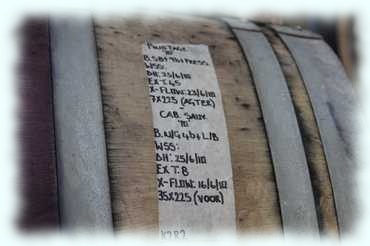 PINOTAGE
'10
B.SB1+9b1+PRESS
WSS:
DH: 25/6/10
EXT: 45
X-FLOW: 23/6/10
7X225 (AGTER)
-
CAB. SAUV.
'10
B.N/G 4b+L/B
WSS:
DH: 25/6/10
EXT: 8
X-FLOW: 16/6/10
35X225 (VOOR)